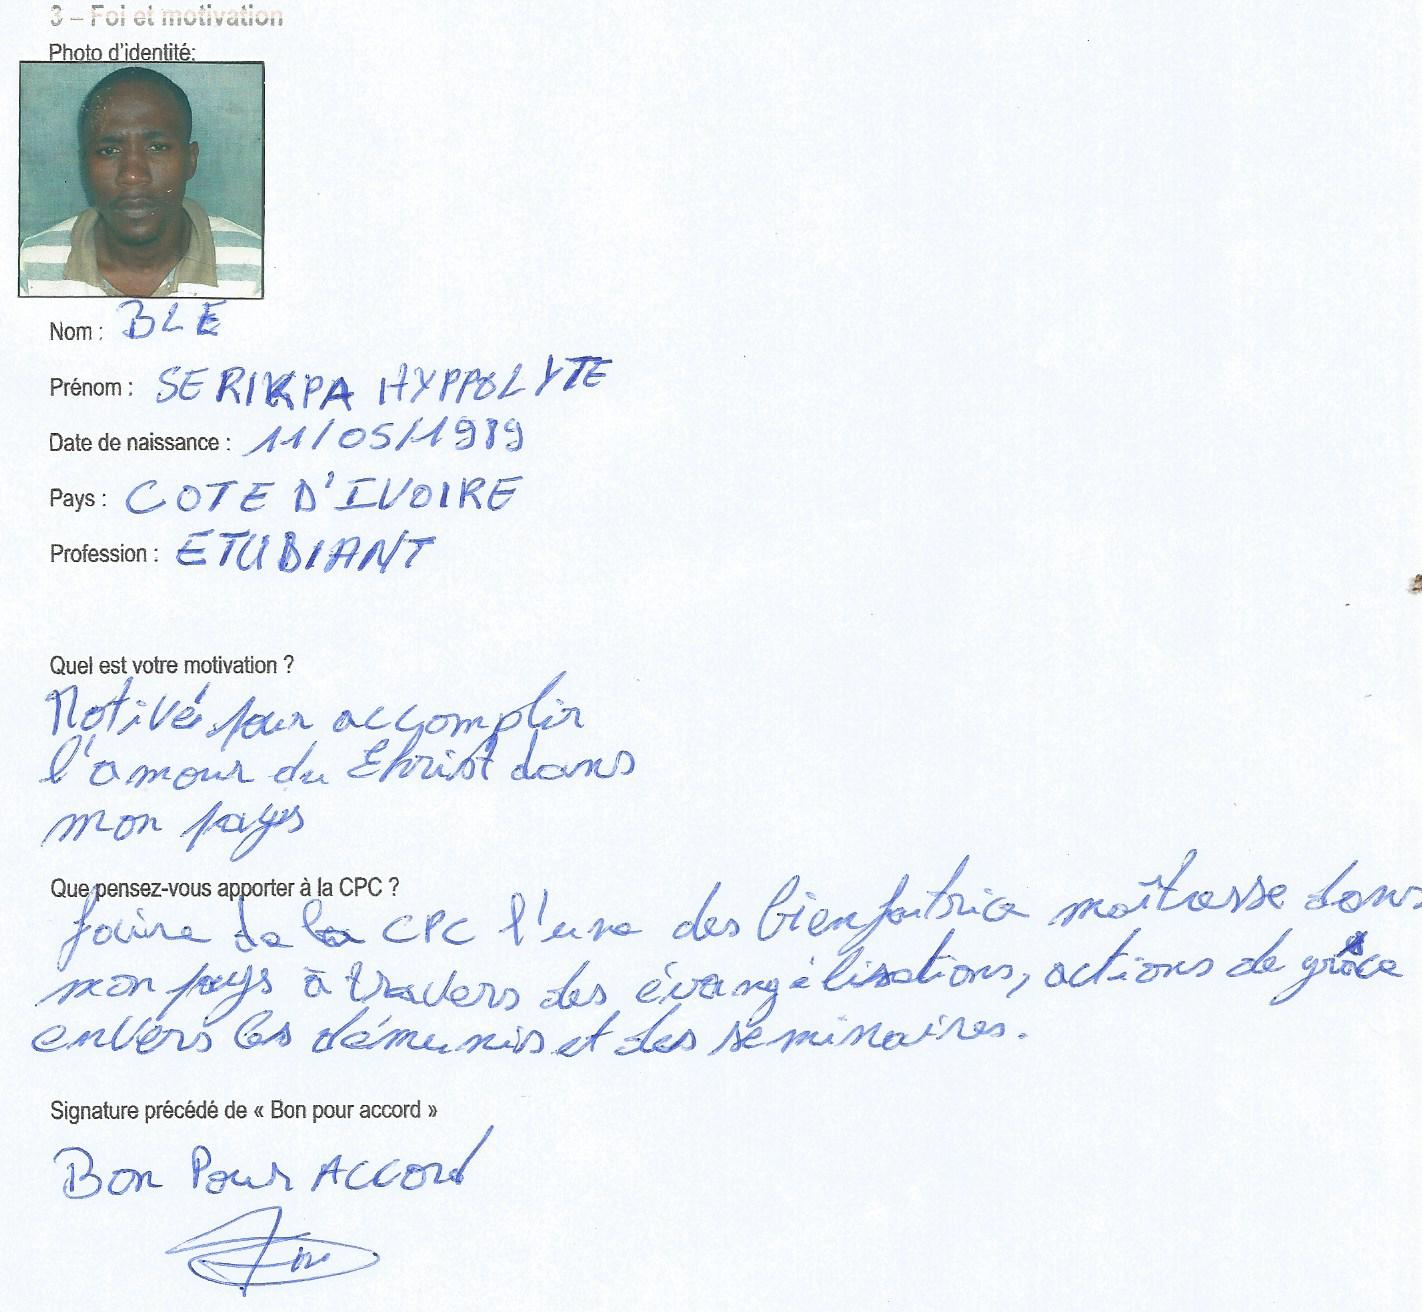 3 – Foi et motivation
Photo d'identité:
Nom : BLE
Prénom : SERIKPA HYPPOLYTE
Date de naissance : 11/05/1989
Pays : COTE D'IVOIRE
Profession : ETUDIANT
Quel est votre motivation ?
Motivé pour accomplir
l'amour du Christ dans
mon pays
Que pensez-vous apporter à la CPC ?
faire de la CPC l'une des bienfaitrice maîtresse dans
mon pays à travers des évangélisations, actions de grâce
envers les démunis et des seminaires.
Signature précédé de « Bon pour accord »
Bon Pour Accord